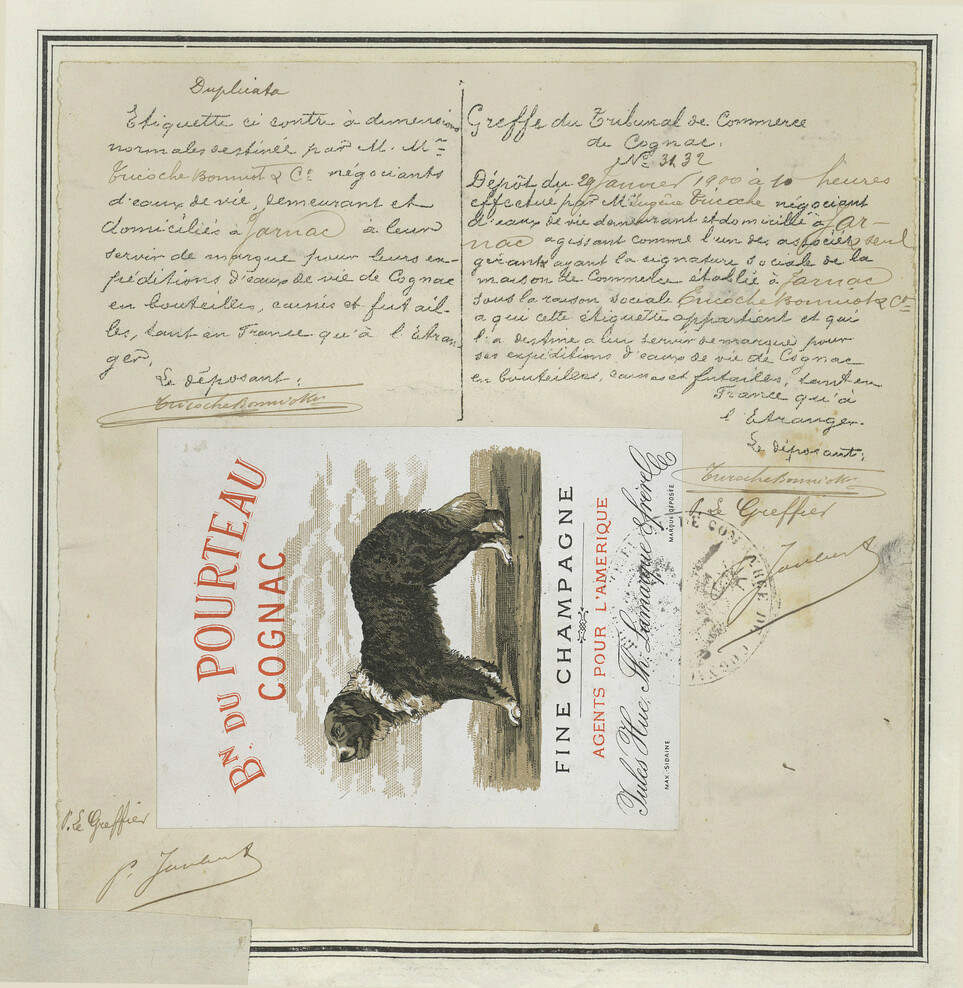 Duplicata
Etiquette ci contre à dimensions
normales destinée par M. Mrs
Tricoche Bonniot & Cie négociants
d'eaux de vie, demeurant et
domiciliés à Jarnac à leur
servir de marque pour leurs ex-
péditions d'eaux de vie de Cognac
en bouteilles, caisses et futail-
les, tant en France qu'à l'Etran
ger.
Le déposant:
Tricoche Bonniot & Cie
Greffe du Tribunal de Commerce
de Cognac.
No 3132
Dépôt du 29 Janvier 1900 à 10 heures
effectué par Mr Eugène Tricoche négociant
d'eaux de vie demeurant et domicilié à Jar-
nac agissant comme l'un des associés seul
gérants ayant la signature sociale de la
maison de Commerce établie à Jarnac
sous la raison sociale Tricoche Bonniot & Cie
a qui cette étiquette appartient et qui
l'a destine a lui servir de marque pour
ses expéditions d'eaux de vie de Cognac
en bouteilles, caisses et futailles, tant en
France qu'à
l'Etranger.
Le déposant:
Tricoche Bonniot & Cie
P. Le Greffier
P. Joubert
BN DU POURTEAU
COGNAC
FINE CHAMPAGNE
AGENTS POUR L'AMERIQUE
Jules Huc, Th. Lamarque & frère
MARQUE DÉPOSÉE
MAX. SIDAINE
P. Le Greffier
P. Joubert